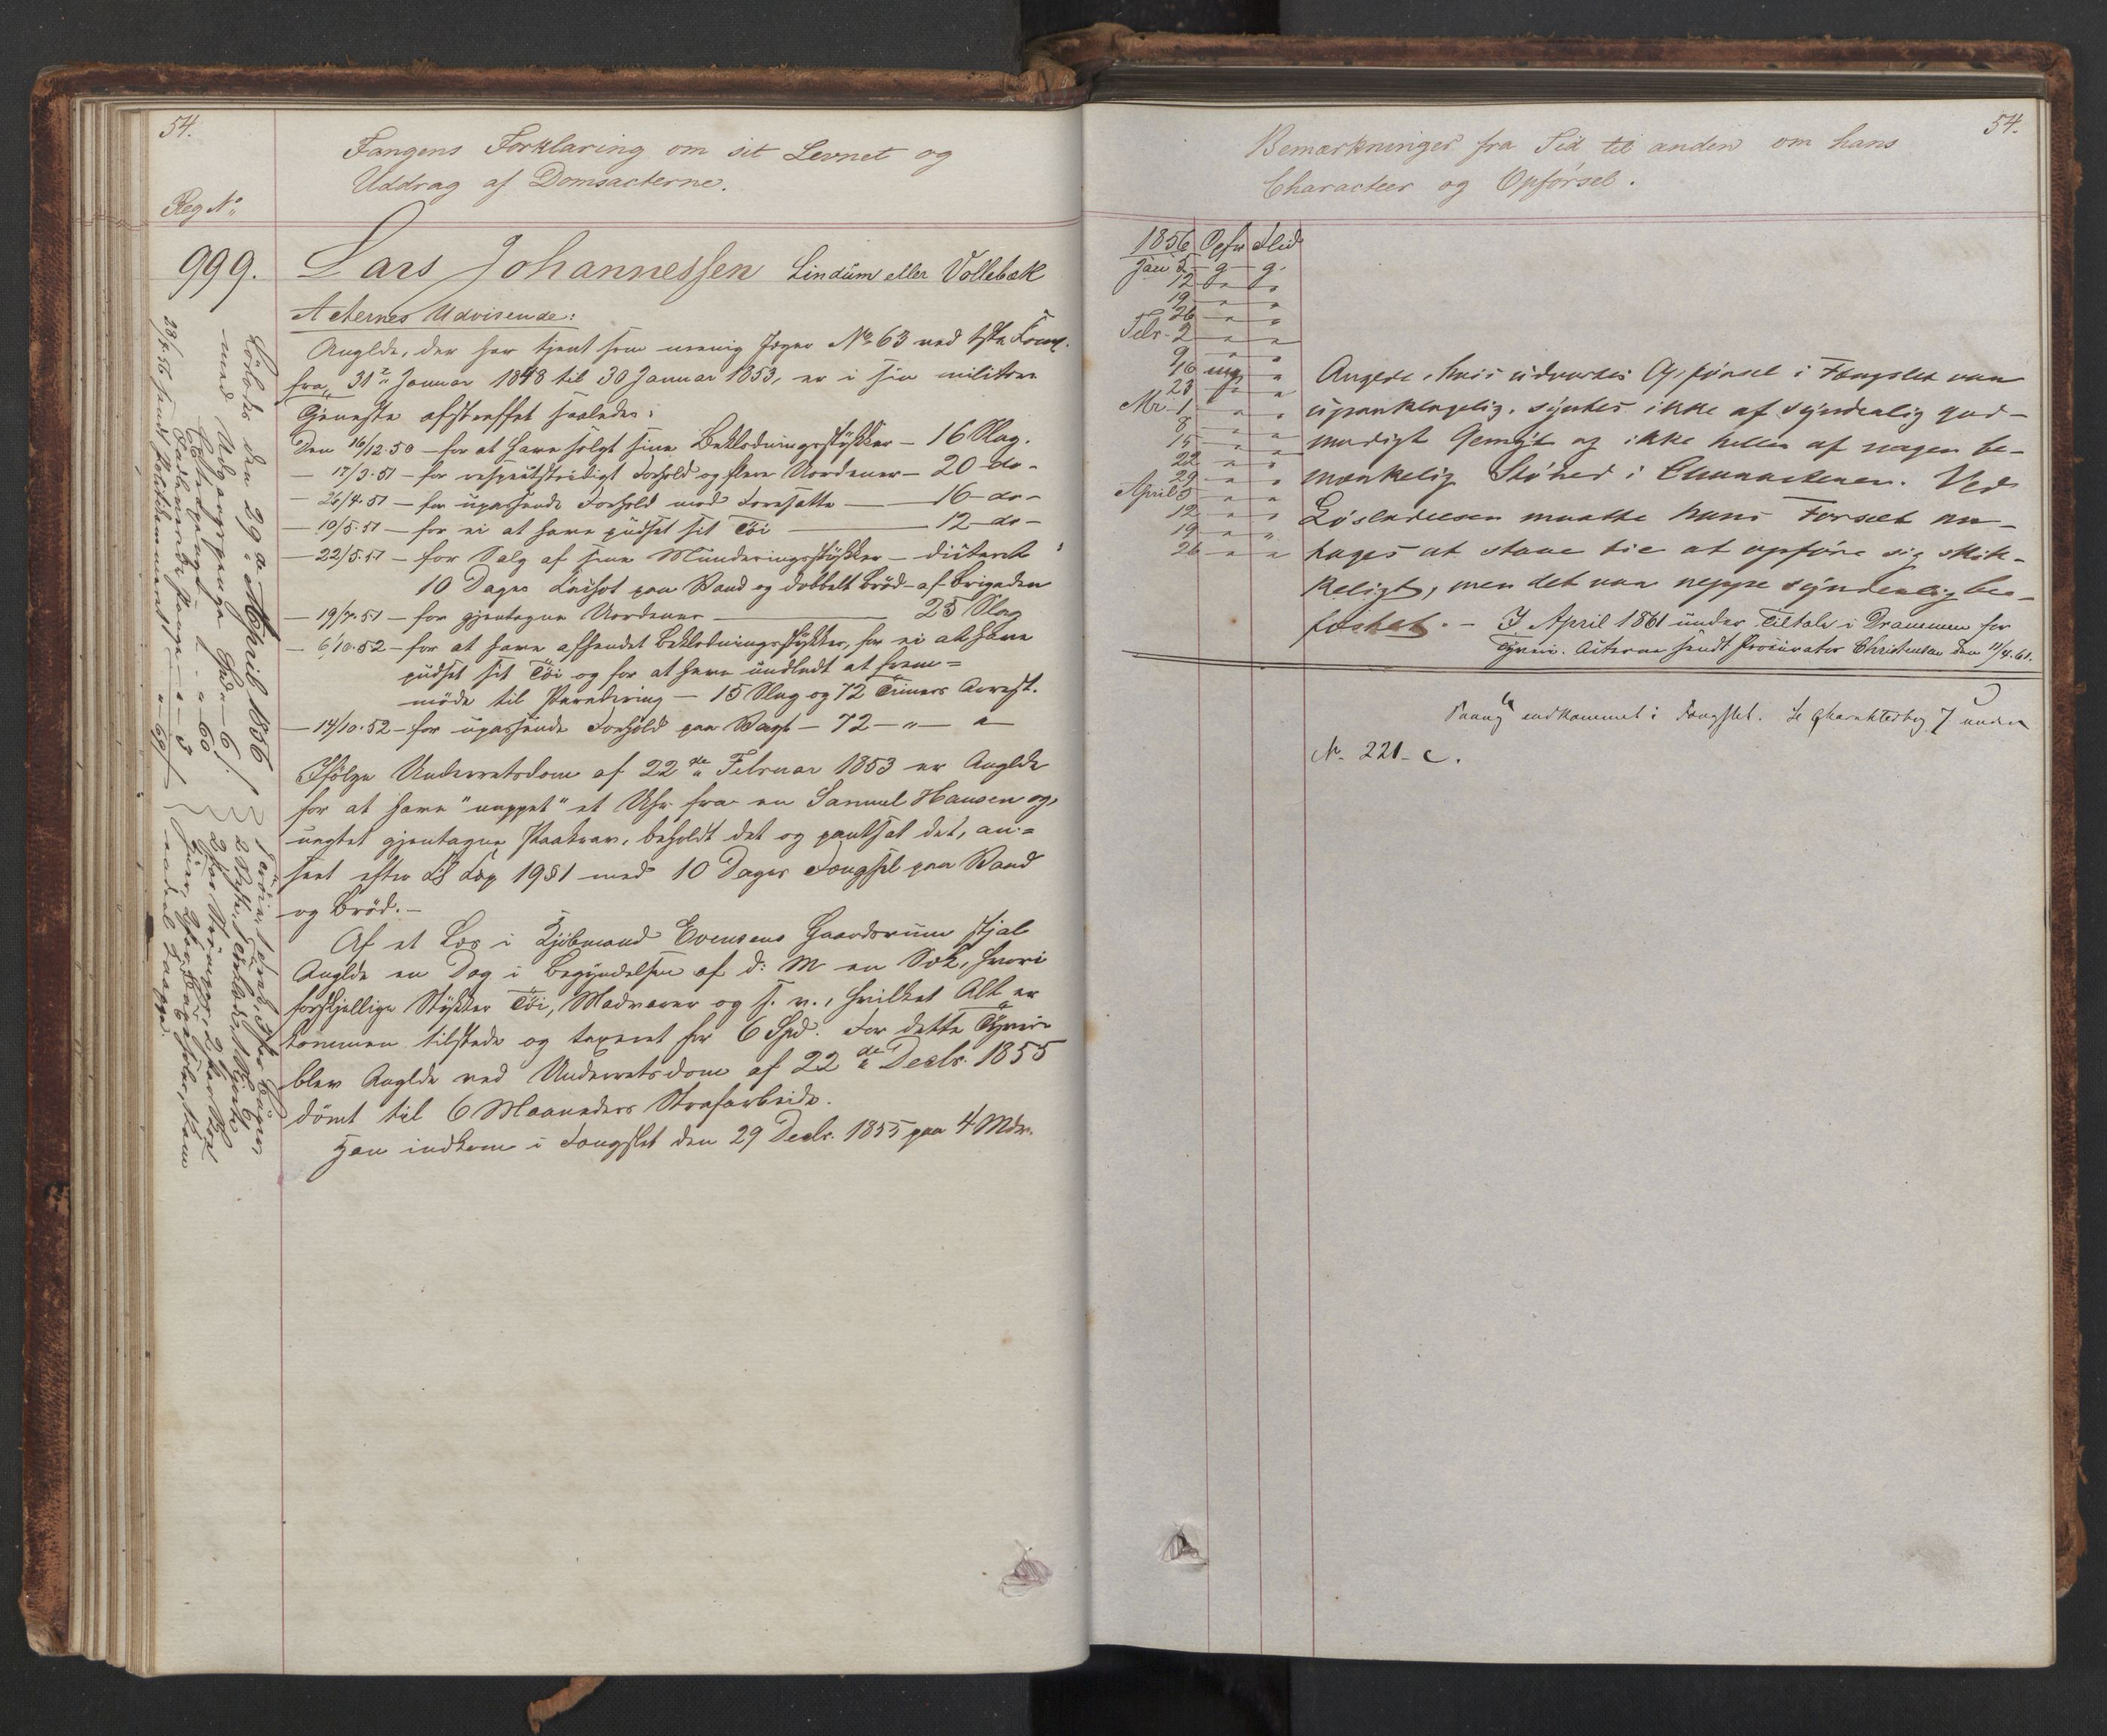 54.
Fangens Forklaring om sit Levnet og
Uddrag af Domsacterne.
Reg No
999.
Lars Johannessen Lindüm eller Vollebæk
Acternes Udvisende:
Anglde, der har tjent som menig Jæger No 63 ved 1ste Komp.
fra 31 Januar 1848 til 30 Januar 1853, er i sin militære
Tjeneste afstraffet saaledes:
Den 16/12.50 – for at have solgt sine Beklædningsstykker – 16 Slag.
– 17/3.51 – for respectstridigt Forhold og flere Uordener – 20 do –
– 26/4.51 – for upassende Forhold mod Foresatte – 16 do –
– 10/5.51 – for ei at have püdset sit Töi – 12 do –
– 22/5.51 – for Salg af sine Münderingsstykker – dicteret
10 Dages Fængsel paa Vand og dobbelt Bröd af Brigaden
– 19/7.51 – for gjentagne Uordener – 25 Slag
– 6/10.52 – for at have afhændet Beklædningsstykker, for ei at have
püdset sit Töi og for at have ündladt at frem=
möde til Paradering – 15 Slag og 72 Timers Arrest.
– 14/10.52 – for upassende Forhold paa Vagt – 72 – " – "
Ifölge Underretsdom af 22de Februar 1853 er Anglde
for at have "nappet" et Uhr fra en Samuel Hansen og,
uagtet gjentagne Paakrav, beholdt det og pantsat det, an=
seet efter Lov Kap 19 § 1 med 10 Dages Fængsel paa Vand
og Bröd. –
Af et Læs i Kjöbmand Evensens Gaardsrum stjal
Anglde en Dag i Begyndelsen af d: M en Sæk, hvori
forskjellige Stykker Töi, Madvarer og s. v., hvilket Alt er
kommen tilstede og taxeret for 6 Spd. For dette Tyveri
blev Anglde ved Underretsdom af 22de Decbr. 1855
dömt til 6 Maaneders Strafarbeide.
Han indkom i Fængslet den 29 Decbr. 1855 paa 4 Mdr.
Löslades den 29 April 1856
med Udgangspenge
28/4.56 sendt Politikammeret
54.
Bemærkninger fra Tid til anden om hans
Characteer og Opförsel.
1856 Opfør Flid
Jan 5 – g – g.
12 " "
19 " "
26 " "
Febr. 2 " "
9 " "
16 mg "
23 " "
Mr. 1 " "
8 " "
15 " "
22 " "
29 " "
April 5 " "
12 " "
19 " "
26 " "
Anglde, hvis üdvortes Opförsel i Fængslet var
üpaaklagelig, syntes ikke af synderlig god-
modigt Gemyt og ikke heller af nogen be-
mærkelig Slöhed i Characteren. Ved
Lösladelsen maatte hans Forsæt an-
tages at staae til at opföre sig skik-
keligt, men det var neppe synderlig be-
fæstet. – I April 1861 ünder Tiltale i Drammen for
Tyveri. Acterne sendt Procurator Christensen den 11/4.61.
Paany indkommet i Fængslet. Se Charakterbog 7 under
No. 221 – c.